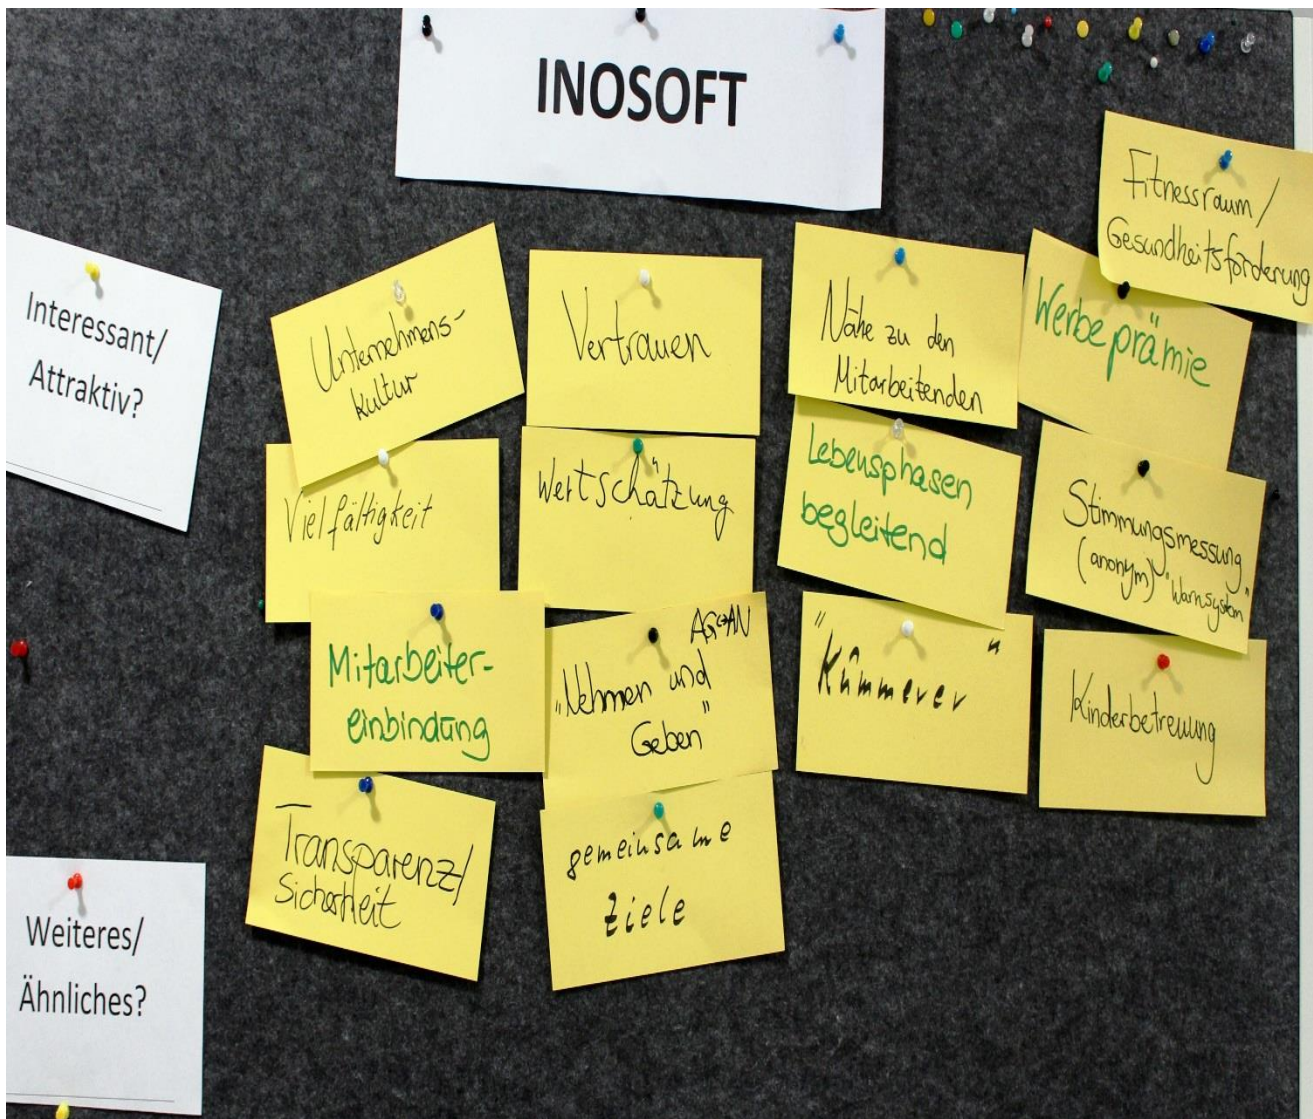 INOSOFT
Interessant/
Attraktiv?
Unternehmens-
kultur
Vielfältigkeit
Mitarbeiter-
einbindung
Transparenz/
Sicherheit
Vertrauen
Wertschätzung
AG↔AN
„Nehmen und
Geben"
gemeinsame
Ziele
Nähe zu den
Mitarbeitenden
Lebensphasen
begleitend
"Kümmerer"
Fitnessraum/
Gesundheitsförderung
Werbeprämie
Stimmungsmessung
(anonym) "Warnsystem"
Kinderbetreuung
Weiteres/
Ähnliches?